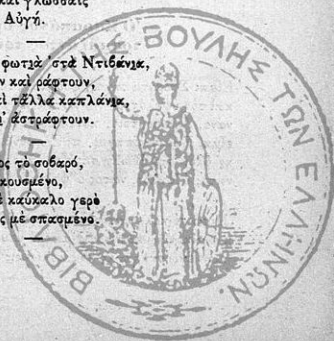 καὶ γλώσσαις
Αὐγή.
φωτιὰ ’στὰ Ντιβάνια,
ν καὶ ράφτουν,
ὶ τἄλλα καπλάνια,
ἀστράφτουν.
ος τὸ σοβαρό,
κουσμένο,
καύκαλο γερὸ
ς μὲ σπασμένο.
ΒΙΒΛΙΟΘΗΚΗ ΤΗΣ ΒΟΥΛΗΣ ΤΩΝ ΕΛΛΗΝΩΝ